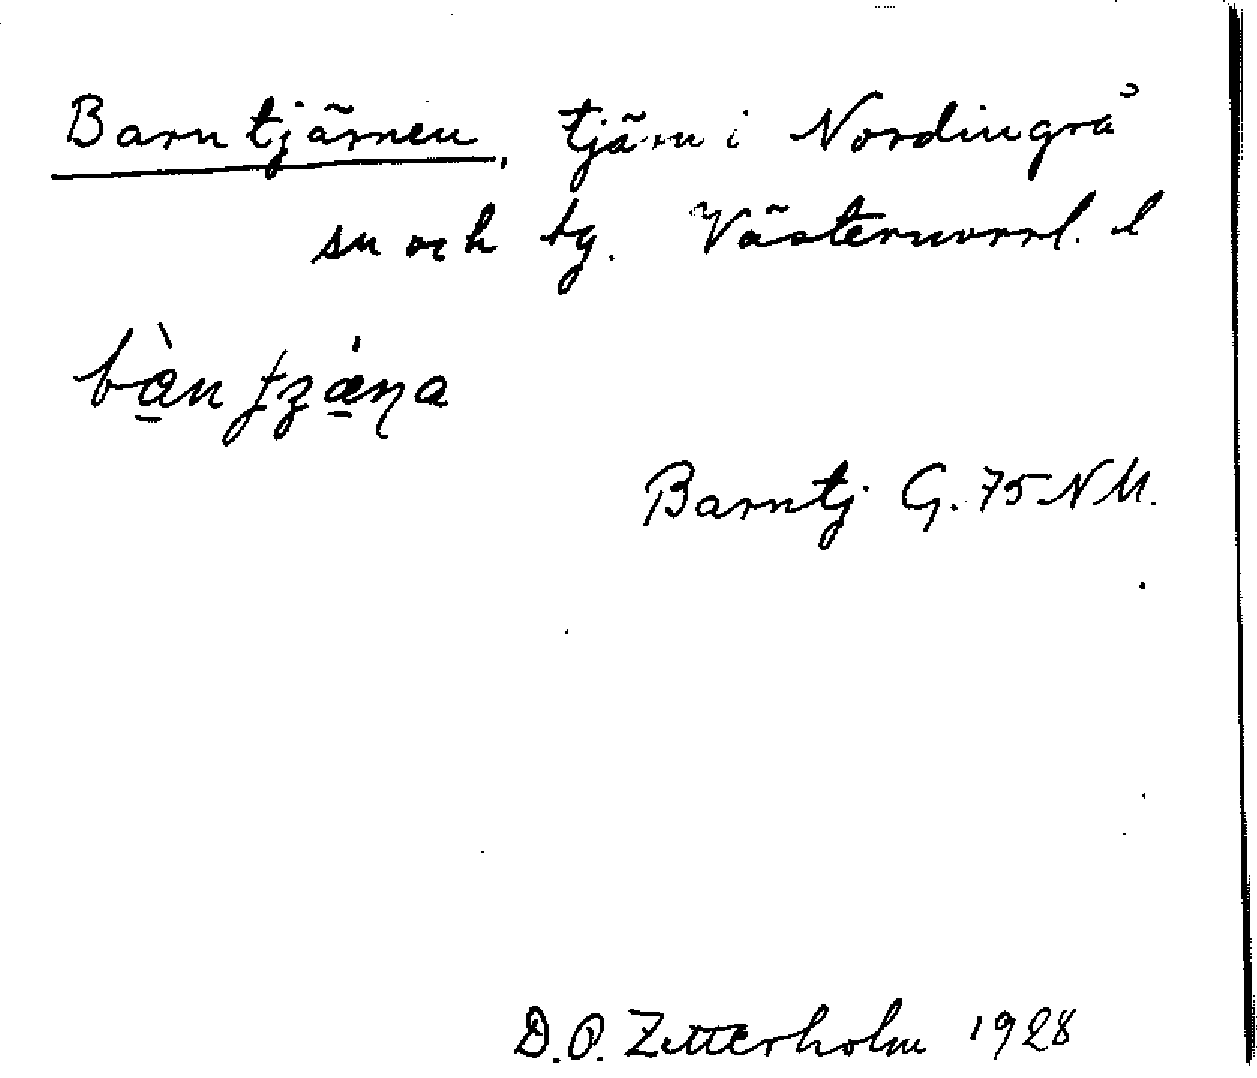 Barntjärnen, tjärn i Nordingrå
sn och tg. Västernorrl. l
Barntj G. 75 NM.
D.O. Zetterholm 1928